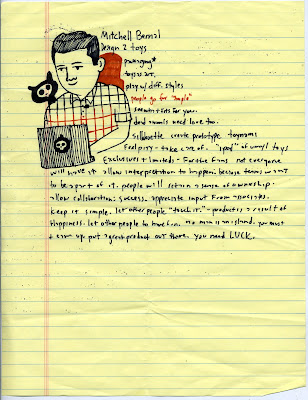 Mitchell Bernal
Design 2 toys
packaging*
toys as art.
play w/ diff. styles
people go for "simple"
something for you.
dead animals need love too.
Silhouette create prototype toynams
Feel play - take care of. "ipod" of vinyl toys
Exclusives + limiteds - For the fans not everyone
will have it allow interpretation to happen. because teams want
to be a part of it. people will retain a sense of ownership.
allow collaboration: success. appreciate input from associates.
Keep it simple. let other people "touch it." - product is a result of
Happiness. let other people to have fun. no man is an island. you must
team up. put a great product out there. you need LUCK.